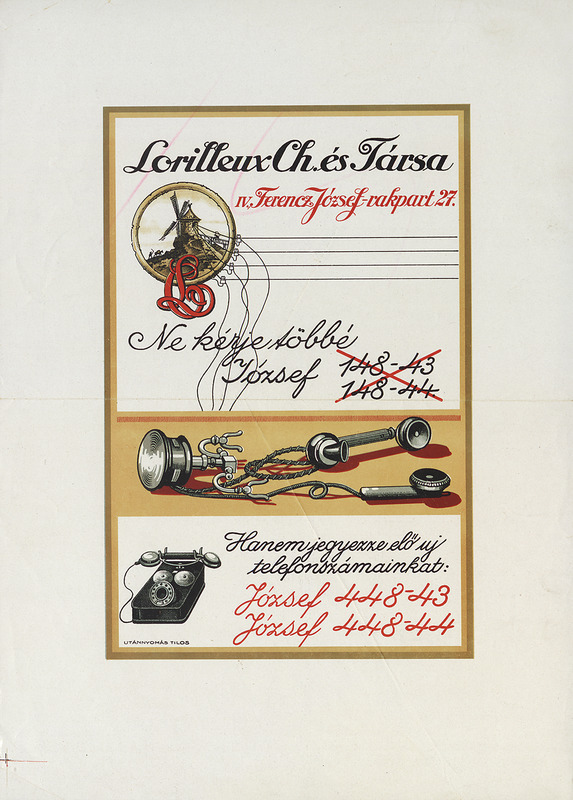 Lorilleux Ch. és Társa
IV., Ferencz József-rakpart 27.
L
Ne kérje többé
József 148-43
148-44
Hanem jegyezze elő uj
telefonszámainkat:
József 448-43
József 448-44
UTÁNNYOMÁS TILOS